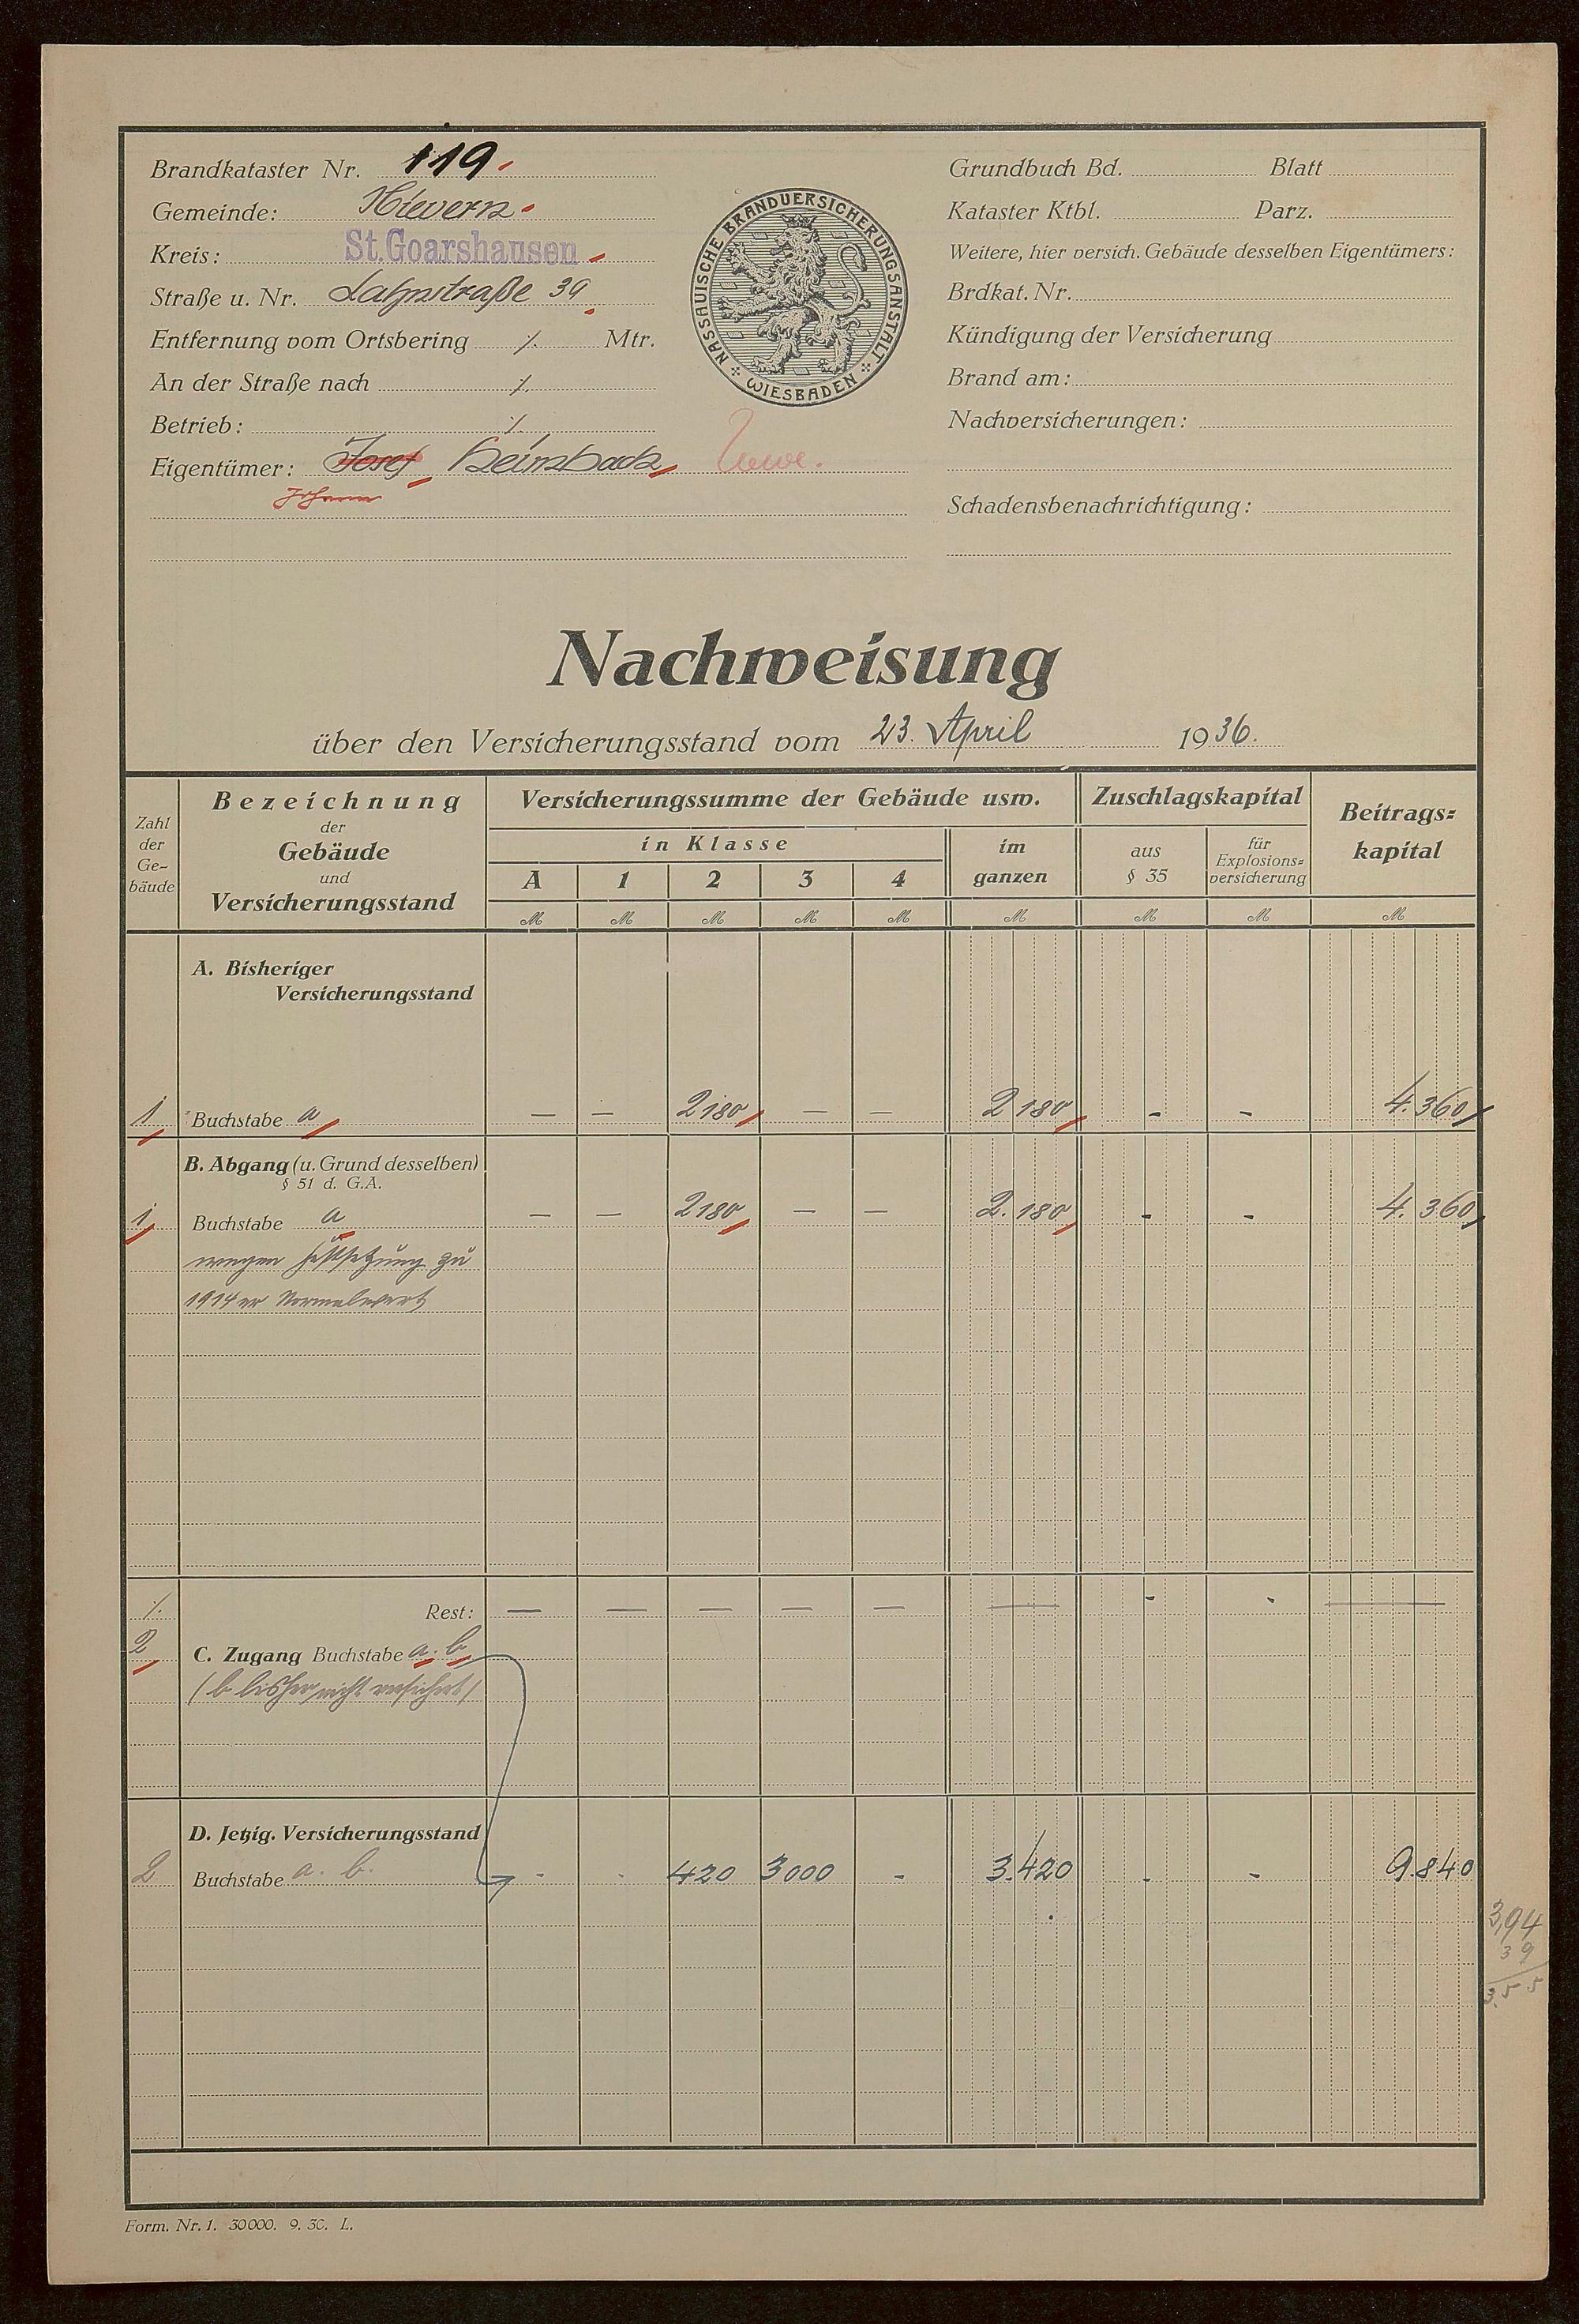 Brandkataster Nr. 119.
Gemeinde: Nievern.
Kreis: St. Goarshausen
Straße u. Nr. Lahnstraße 39
Entfernung vom Ortsbering ./. Mtr.
An der Straße nach ./.
Betrieb: ./.
Eigentümer: Josef Heimbach, Wwe.
Johann
NASSAUISCHE BRANDVERSICHERUNGSANSTALT
WIESBADEN
Grundbuch Bd. Blatt
Kataster Ktbl. Parz.
Weitere, hier versich. Gebäude desselben Eigentümers:
Brdkat. Nr.
Kündigung der Versicherung
Brand am:
Nachversicherungen:
Schadensbenachrichtigung:
Nachweisung
über den Versicherungsstand vom 23. April 1936.
Zahl der Ge-bäude
Bezeichnung der Gebäude und Versicherungsstand
Versicherungssumme der Gebäude usw.
in Klasse
A 1 2 3 4
im ganzen
Zuschlagskapital
aus § 35
für Explosions=versicherung
Beitrags=kapital
M M M M M M M M M
A. Bisheriger
Versicherungsstand
1 Buchstabe a — — 2180 — — 2180 - - 4.360
B. Abgang (u. Grund desselben)
§ 51 d. G.A.
1 Buchstabe a — — 2180 — — 2.180 - - 4.360
wegen Festsetzung zu
1914er Normalwert
./. Rest: — — — — — — - - —
2 C. Zugang Buchstabe a. b
(b bisher nicht versichert)
D. Jetzig. Versicherungsstand
2 Buchstabe a. b. - - 420 3000 - 3.420 - - 9.840
3,94
39
3.55
Form. Nr. 1. 30000. 9. 30. L.